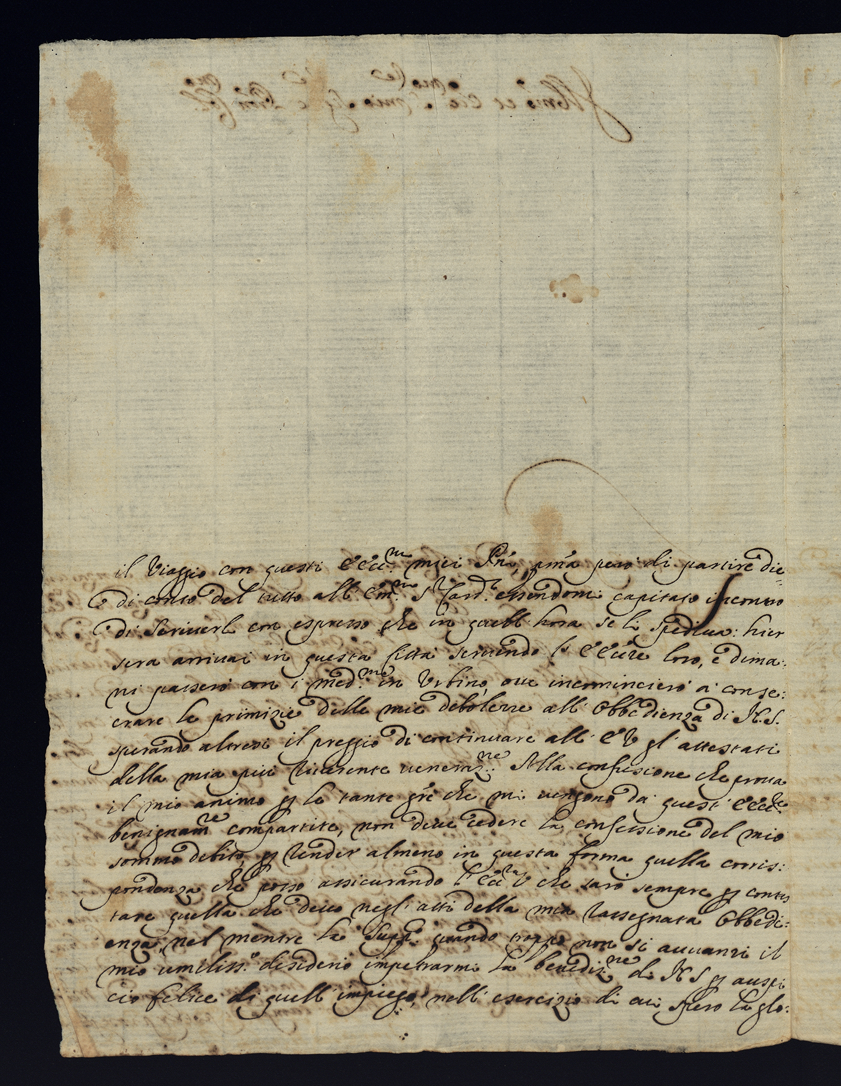 il Viaggio con questi Ecc.mi miei Pñi, pma però di partire die
di conto del tutto all' Em.mo S.r Card.l essendomi capitato incontro
di scriverli con espresso che in quell' hora se li spediva: hier
sera arrivai in questa Città servendo l' Ecc.ze loro, e dima:
ni passerò con i med.mi in Urbino, ove incomincierò à conse:
crare le primizie delle mie debolezze all' Obbedienza di N. S.
sperando altresi il preggio di continuare all' E V gl' attestati
della mia più riverente veneraz.ne: Alla confusione che prova
il mio animo p le tante gr̃e che mi vengono da questi Ecc.mi
benignam.te compartite, non deve cedere la confusione del mio
sommo debito p render almeno in questa forma quella corris:
pondenza che posso assicurando l' Ecc.za V che sarò sempre p contes
tare quella che devo negl' atti della mia rassegnata Obbedi:
enza, nel mentre la Supp.co quando troppo non si avvanzi il
mio umiliss.o desiderio impetrarmi la benediz.ne di N S p auspi
cio felice di quell' impiego, nell' esercizio di cui spero la glo: